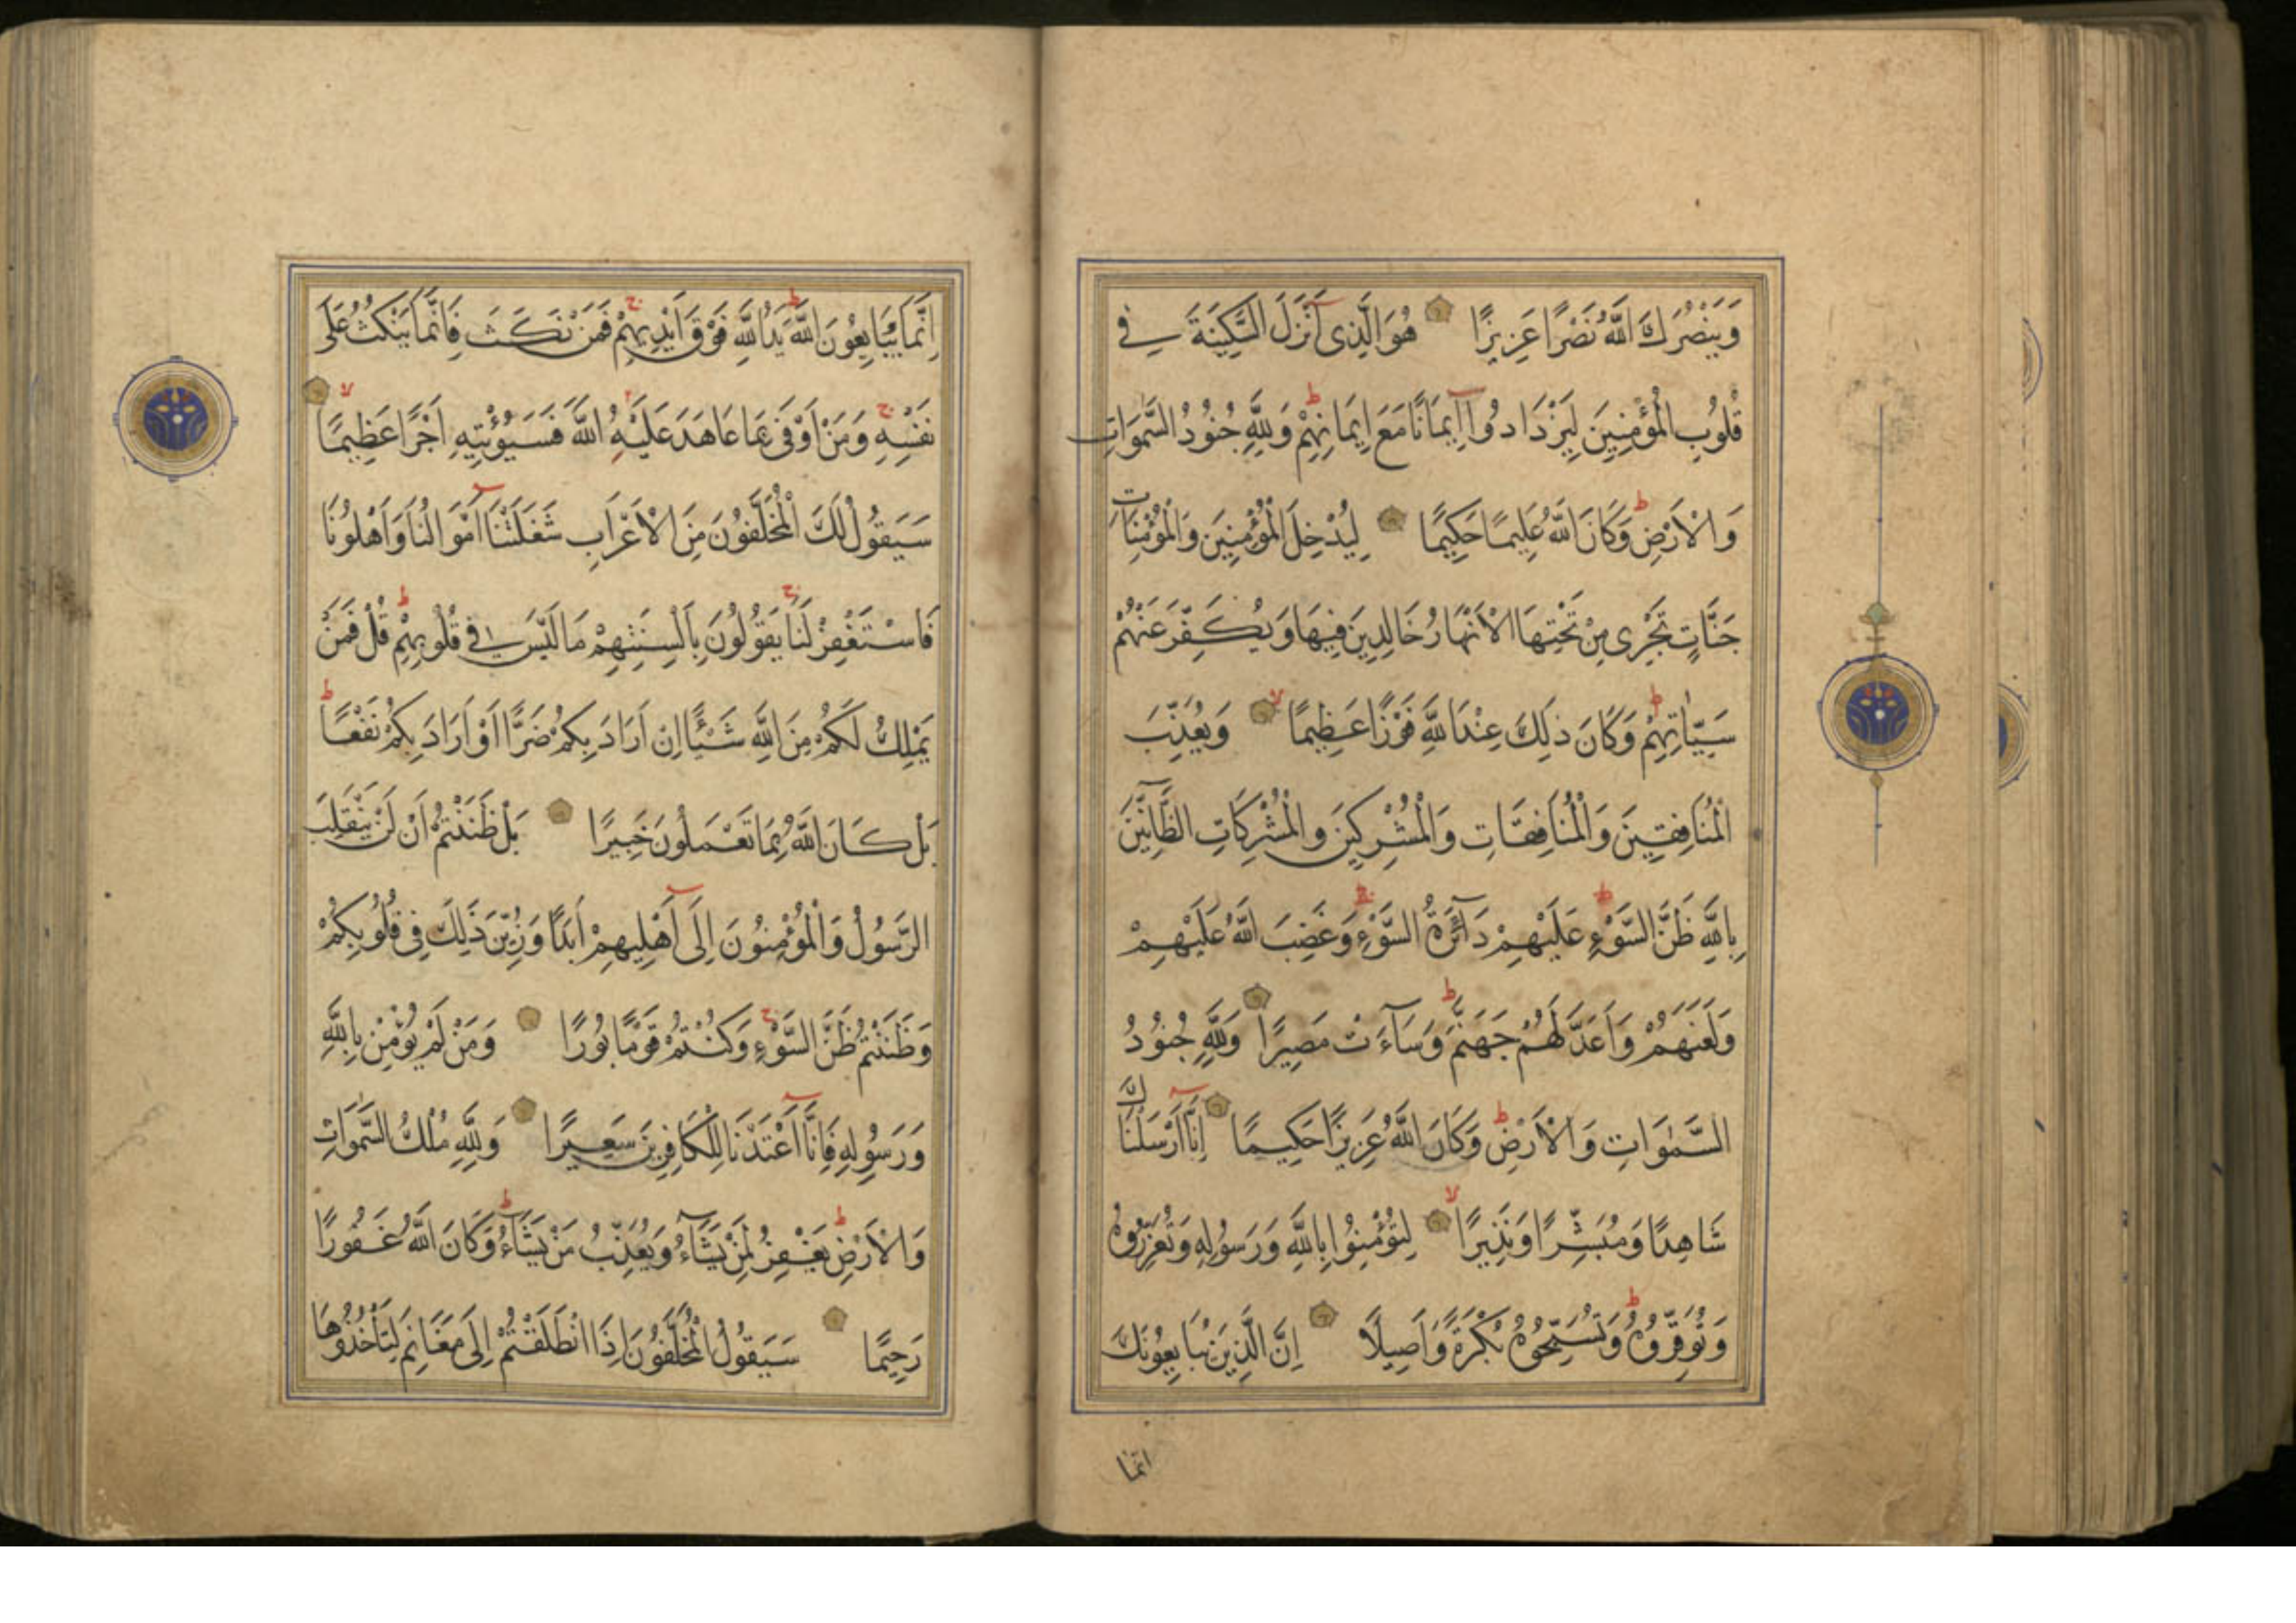 وَيَنْصُرَكَ اللّٰهُ نَصْرًا عَزِيزًا هُوَ الَّذِى أَنْزَلَ السَّكِينَةَ فِى
قُلُوبِ الْمُؤْمِنِينَ لِيَزْدَادُوا اِيمَانًا مَعَ اِيمَانِهِمْ وَلِلّٰهِ جُنُودُ السَّمٰوَاتِ
وَالْاَرْضِ وَكَانَ اللّٰهُ عَلِيمًا حَكِيمًا لِيُدْخِلَ الْمُؤْمِنِينَ وَالْمُؤْمِنَاتِ
جَنَّاتٍ تَجْرِى مِنْ تَحْتِهَا الْاَنْهَارُ خَالِدِينَ فِيهَا وَيُكَفِّرَ عَنْهُمْ
سَيِّاٰتِهِمْ وَكَانَ ذٰلِكَ عِنْدَ اللّٰهِ فَوْزًا عَظِيمًا وَيُعَذِّبَ
الْمُنَافِقِينَ وَالْمُنَافِقَاتِ وَالْمُشْرِكِينَ وَالْمُشْرِكَاتِ الظَّآنِّينَ
بِاللّٰهِ ظَنَّ السَّوْءِ عَلَيْهِمْ دَآئِرَةُ السَّوْءِ وَغَضِبَ اللّٰهُ عَلَيْهِمْ
وَلَعَنَهُمْ وَاَعَدَّ لَهُمْ جَهَنَّمَ وَسَآءَتْ مَصِيرًا وَلِلّٰهِ جُنُودُ
السَّمٰوَاتِ وَالْاَرْضِ وَكَانَ اللّٰهُ عَزِيزًا حَكِيمًا اِنَّآ اَرْسَلْنَاكَ
شَاهِدًا وَمُبَشِّرًا وَنَذِيرًا لِتُؤْمِنُوا بِاللّٰهِ وَرَسُولِهِ وَتُعَزِّرُوهُ
وَتُوَقِّرُوهُ وَتُسَبِّحُوهُ بُكْرَةً وَاَصِيلًا اِنَّ الَّذِينَ يُبَايِعُونَكَ
انما
اِنَّمَا يُبَايِعُونَ اللّٰهَ يَدُ اللّٰهِ فَوْقَ اَيْدِيهِمْ فَمَنْ نَكَثَ فَاِنَّمَا يَنْكُثُ عَلٰى
نَفْسِهِ وَمَنْ اَوْفٰى بِمَا عَاهَدَ عَلَيْهُ اللّٰهَ فَسَيُؤْتِيهِ اَجْرًا عَظِيمًا
سَيَقُولُ لَكَ الْمُخَلَّفُونَ مِنَ الْاَعْرَابِ شَغَلَتْنَآ اَمْوَالُنَا وَاَهْلُونَا
فَاسْتَغْفِرْ لَنَا يَقُولُونَ بِاَلْسِنَتِهِمْ مَا لَيْسَ فِى قُلُوبِهِمْ قُلْ فَمَنْ
يَمْلِكُ لَكُمْ مِنَ اللّٰهِ شَيْئًا اِنْ اَرَادَ بِكُمْ ضَرًّا اَوْ اَرَادَ بِكُمْ نَفْعًا
بَلْ كَانَ اللّٰهُ بِمَا تَعْمَلُونَ خَبِيرًا بَلْ ظَنَنْتُمْ اَنْ لَنْ يَنْقَلِبَ
الرَّسُولُ وَالْمُؤْمِنُونَ اِلٰٓى اَهْلِيهِمْ اَبَدًا وَزُيِّنَ ذٰلِكَ فِى قُلُوبِكُمْ
وَظَنَنْتُمْ ظَنَّ السَّوْءِ وَكُنْتُمْ قَوْمًا بُورًا وَمَنْ لَمْ يُؤْمِنْ بِاللّٰهِ
وَرَسُولِهِ فَاِنَّآ اَعْتَدْنَا لِلْكَافِرِينَ سَعِيرًا وَلِلّٰهِ مُلْكُ السَّمٰوَاتِ
وَالْاَرْضِ يَغْفِرُ لِمَنْ يَشَآءُ وَيُعَذِّبُ مَنْ يَشَآءُ وَكَانَ اللّٰهُ غَفُورًا
رَحِيمًا سَيَقُولُ الْمُخَلَّفُونَ اِذَا انْطَلَقْتُمْ اِلٰى مَغَانِمَ لِتَأْخُذُوهَا